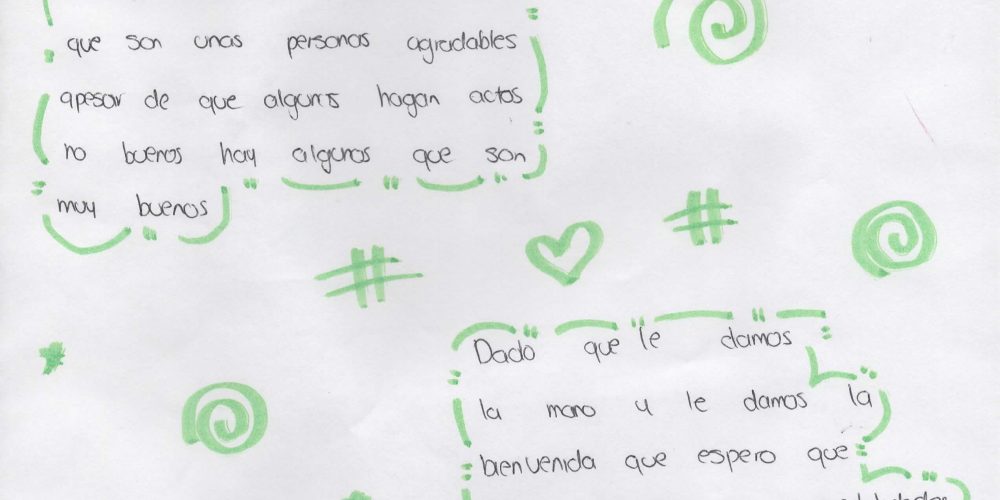 que son unas personas agradables
apesar de que algunos hagan actos
no buenos hay algunos que son
muy buenos
Dado que le damos
la mano y le damos la
bienvenida que espero que